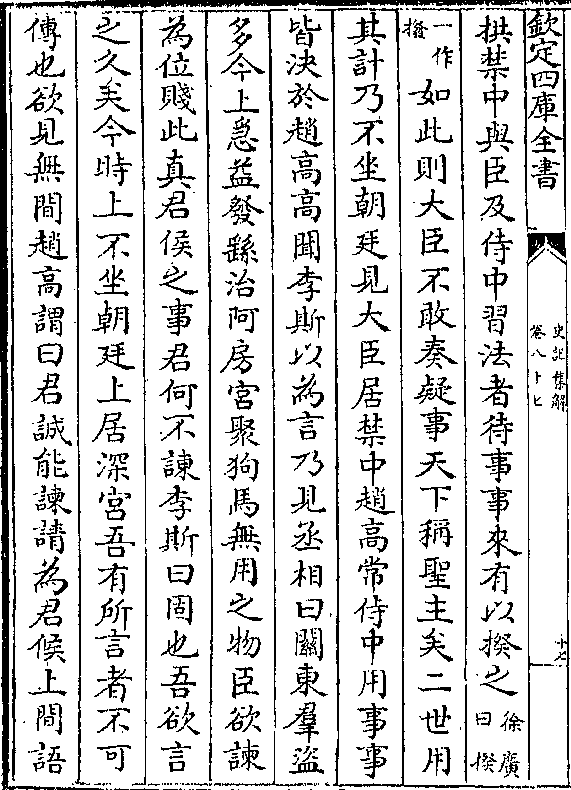 欽定四庫全書
史記集解
卷八十七
十七
拱禁中與臣及侍中習法者待事事來有以揆之徐廣曰揆
一作撥如此則大臣不敢奏疑事天下稱聖主矣二世用
其計乃不坐朝廷見大臣居禁中趙高常侍中用事事
皆決於趙高高聞李斯以為言乃見丞相曰關東羣盜
多今上急益發繇治阿房宮聚狗馬無用之物臣欲諫
為位賤此真君侯之事君何不諫李斯曰固也吾欲言
之久矣今時上不坐朝廷上居深宮吾有所言者不可
傳也欲見無間趙高謂曰君誠能諫請為君候上間語